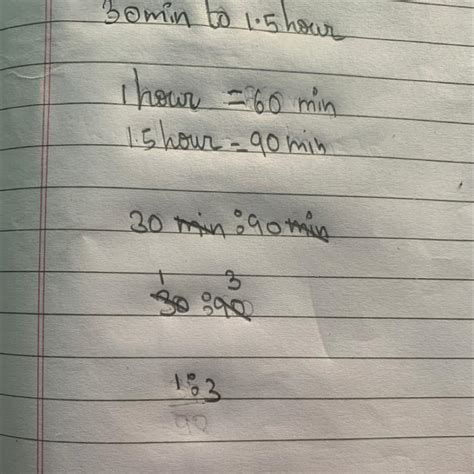 30min to 1.5hour
1hour = 60 min
1.5hour = 90min
30 min : 90min
1 3
30 : 90
1:3
90